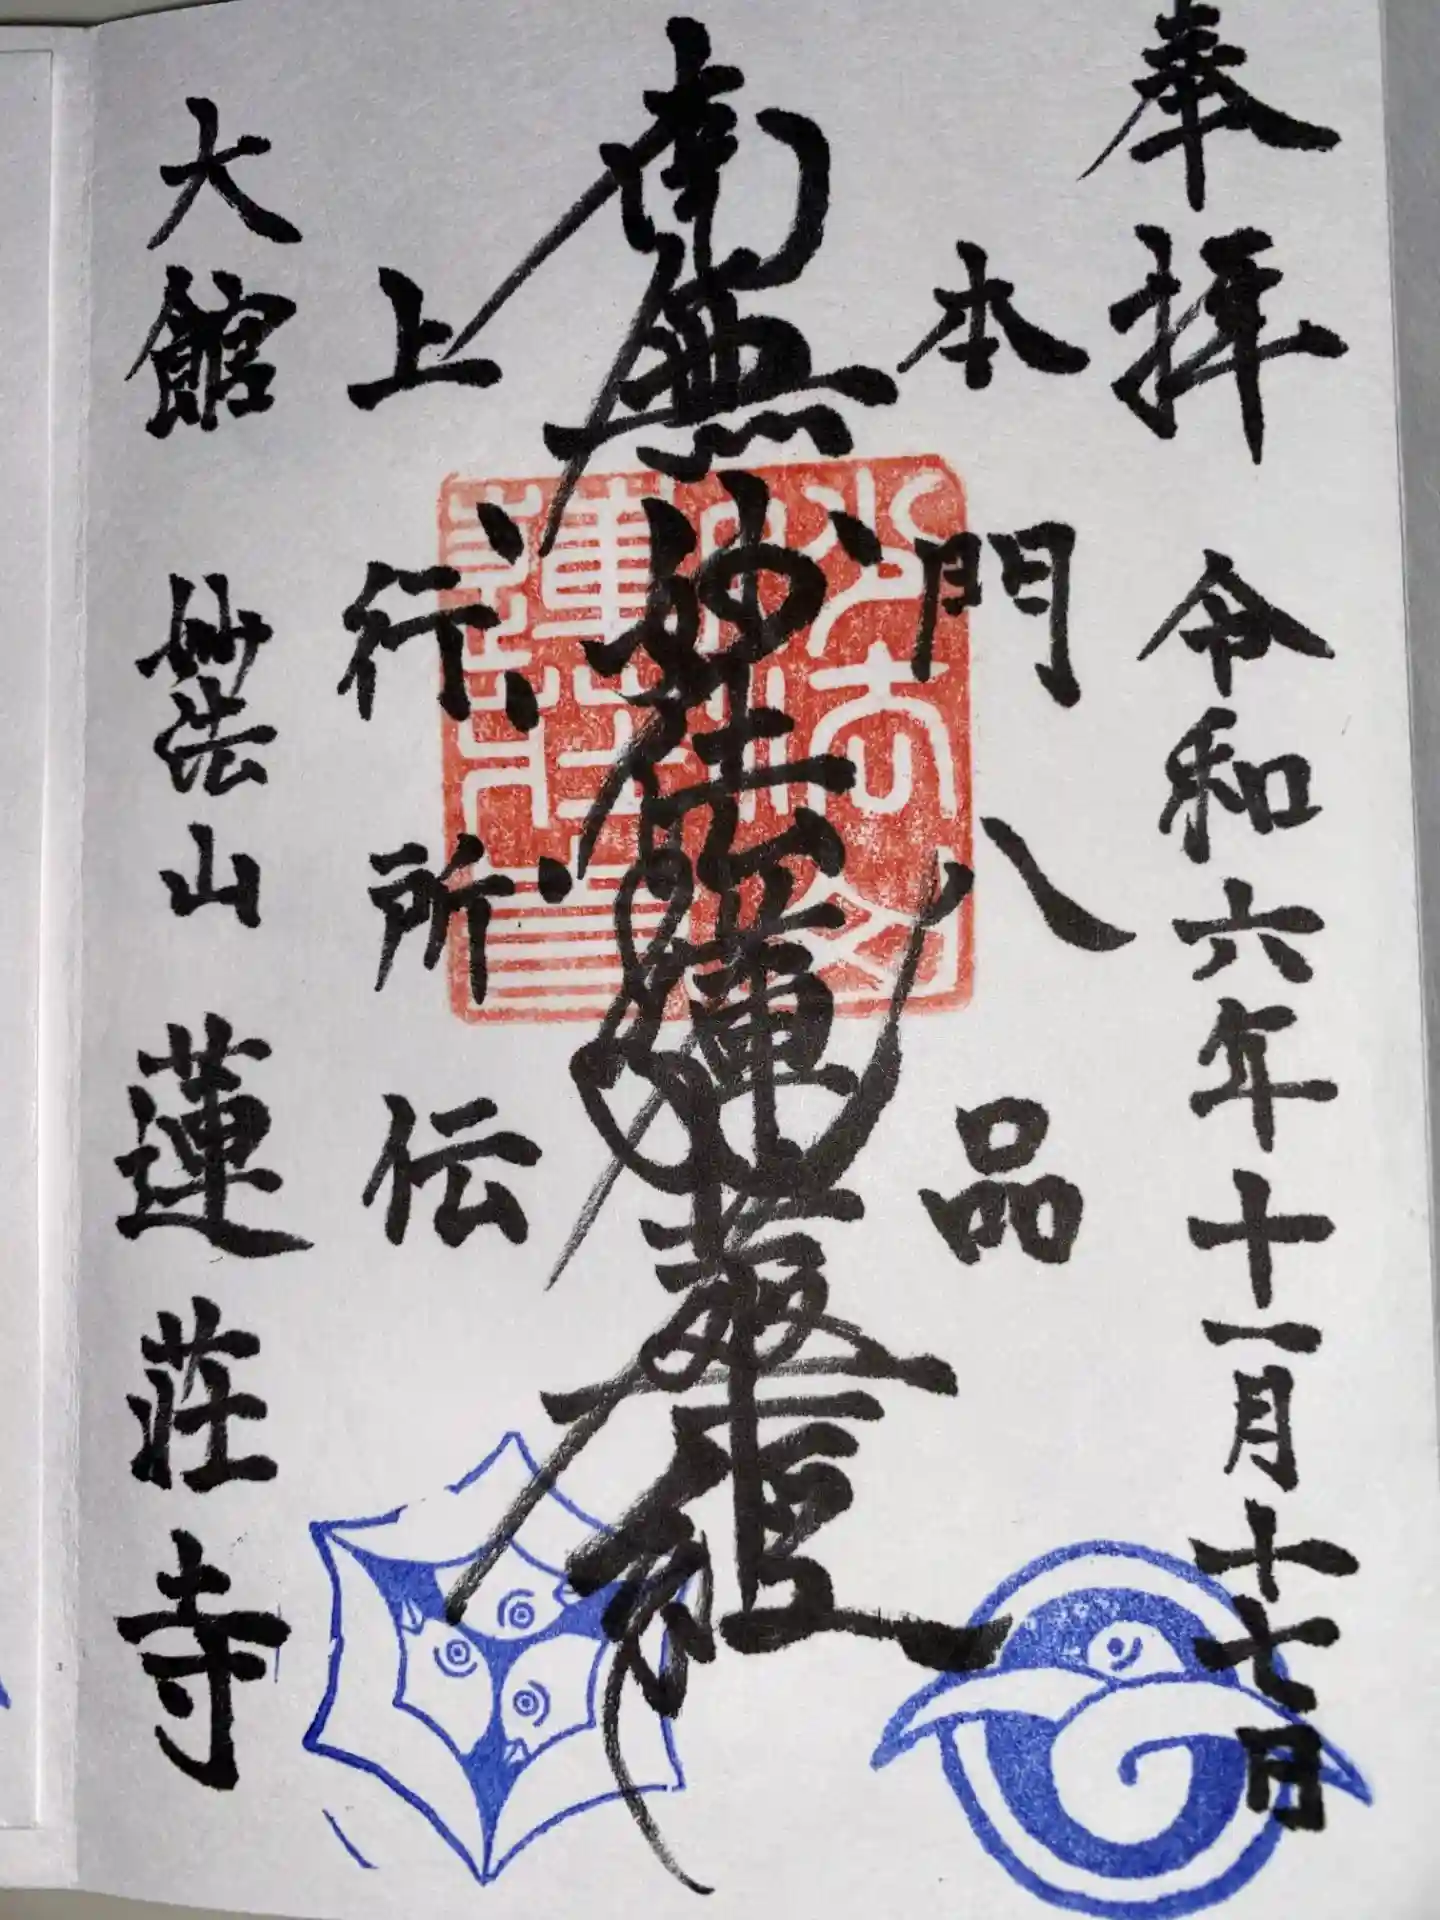 奉拝 令和六年十一月十七日
本門八品
南無妙法蓮華経
上行所伝
大館 妙法山 蓮荘寺